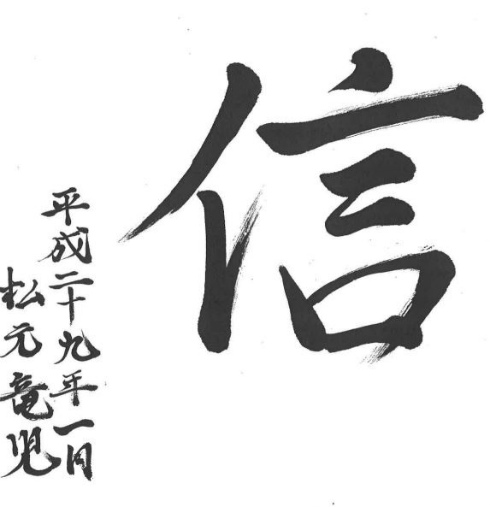 信
平成二十九年一月
松元竜児